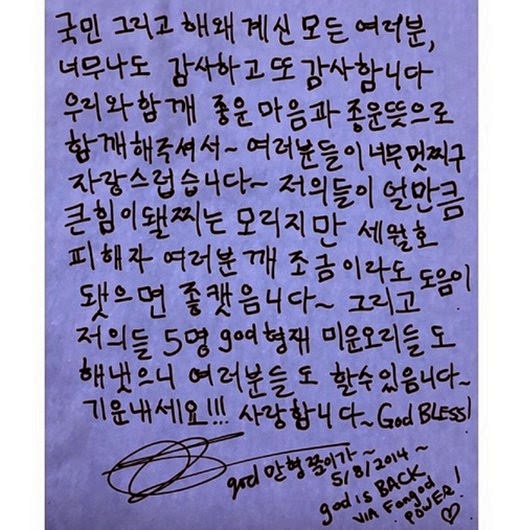 국민 그리고 해왜 계신 모든 여러분,
너무나도 감사하고 또 감사합니다
우리와 함깨 좋운 마음과 좋운뜻으로
함깨해주셔서~ 여러분들이 너무 멋찌구
자랑스럽습니다~ 저의들이 얼만큼
큰힘이 됄찌는 모리지만 세월호
피해자 여러분깨 조금이라도 도음이
됐으면 좋캣읍니다~ 그리고
저의들 5명 god 형재 미운오리들도
해냇으니 여러분들도 할수있음니다~
기운내세요!!! 사랑합니다~ God BLESS!
god 만형쭈니가~
5/8/2014 ~
god is BACK
VIA Fangod
POWER!